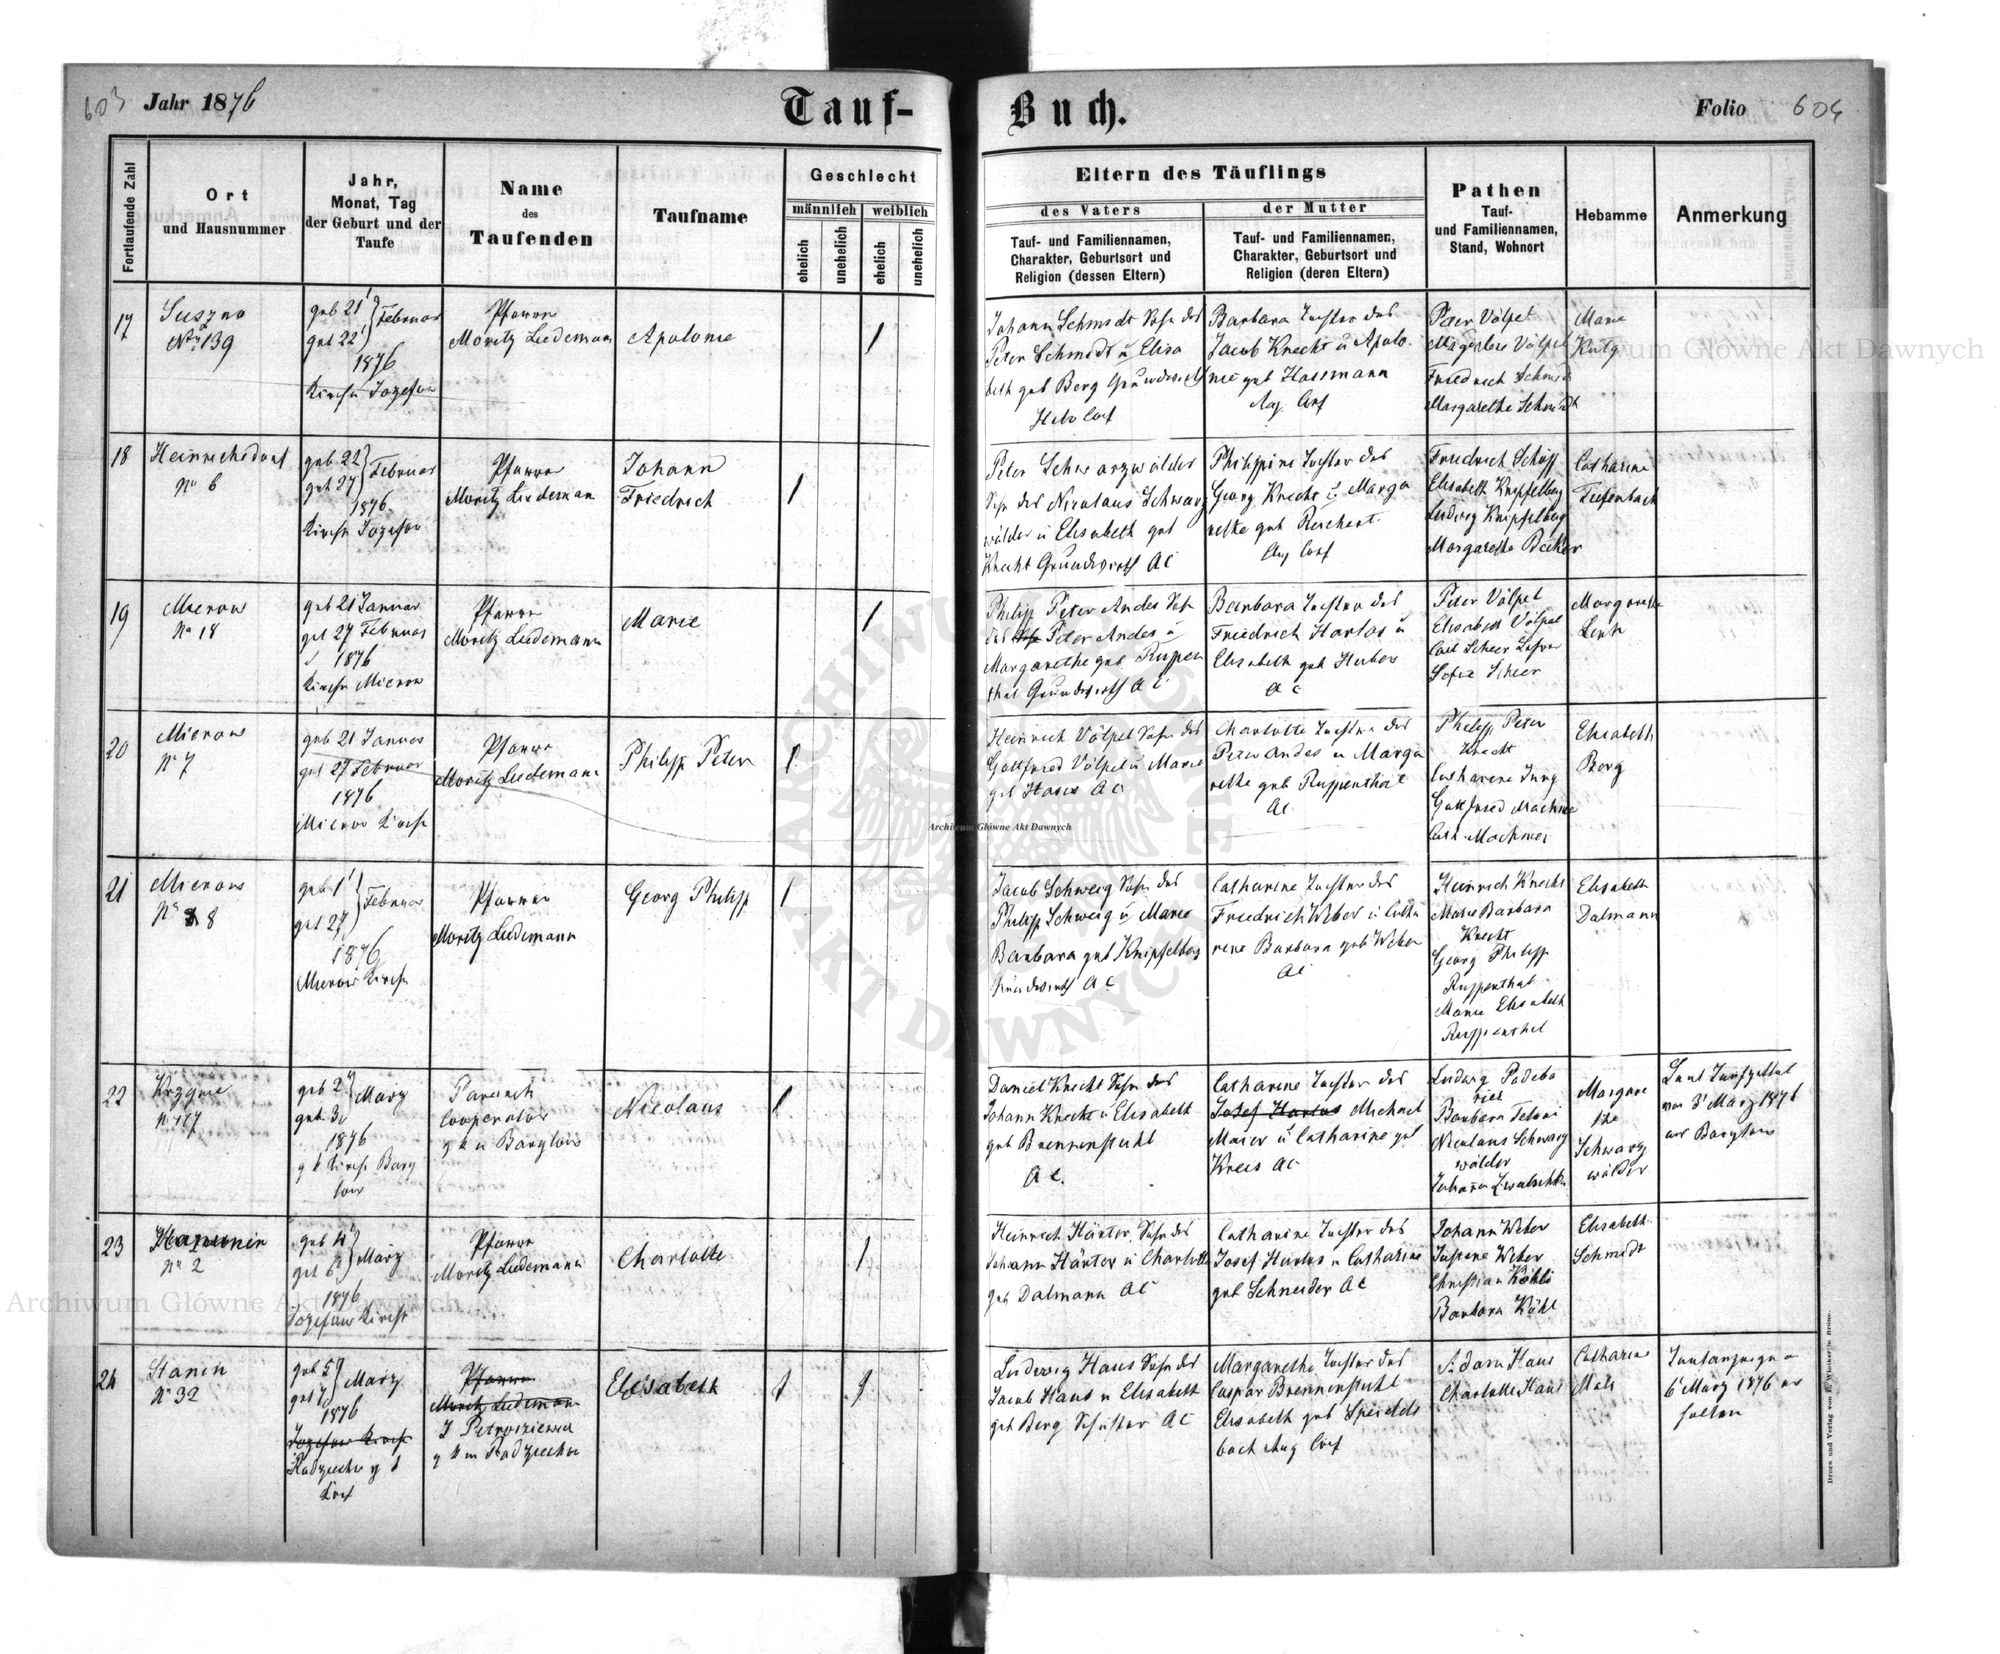 603
Jahr 1876
Tauf-
Buch.
Folio
604
Fortlaufende Zahl
Ort
und Hausnummer
Jahr,
Monat, Tag
der Geburt und der
Taufe
Name
des
Taufenden
Taufname
Geschlecht
männlich
weiblich
ehelich
unehelich
ehelich
unehelich
Eltern des Täuflings
des Vaters
der Mutter
Tauf- und Familiennamen,
Charakter, Geburtsort und
Religion (dessen Eltern)
Tauf- und Familiennamen,
Charakter, Geburtsort und
Religion (deren Eltern)
Pathen
Tauf-
und Familiennamen,
Stand, Wohnort
Hebamme
Anmerkung
17
Suszno
No 139
geb 21
get 22
Februar
1876
Kirche Jozefow
Pfarrer
Moritz Ludemann
Apolonie
1
Johann Schmidt Sohn des
Peter Schmidt u Elisa
beth geb Berg Grundwirth
Helv Conf
Barbara Tochter des
Jacob Knecht u Apolo-
nie geb Hassmann
Aug. Conf
Peter Völpel
Völpel
Friedrich Schmidt
Margarethe Schmidt
Marie
18
Heinrichsdorf
No 6
geb 22
get 27
Februar
1876
Kirche Jozefow
Pfarrer
Moritz Ludeman
Johann
Friedrich
1
Peter Schwarzwälder
Sohn des Nicolaus Schwarz
wälder u Elisabeth geb
Knecht Grundwirth AC
Philippine Tochter des
Georg Knecht u Marga
rethe geb Reichert
Aug Conf
Friedrich Schöpp
Elisabeth Knipfelberg
Ludwig Knipfelberg
Margaretha Becker
Catharine
Tiefenbach
19
Mierow
No 18
geb 21 Januar
get 27 Februar
1876
Kirche Mierow
Pfarrer
Moritz Ludemann
Marie
1
Philipp Peter Andes Sohn
des Peter Andes u
Margarethe geb Ruppen
thal Grundwirth AC
Barbara Tochter des
Friedrich Harlos u
Elisabeth geb Huber
AC
Peter Völpel
Elisabeth Völpel
Carl Scheer
Sofie Scheer
Margarethe
20
Mierow
No 7
geb 21 Januar
get 27 Februar
1876
Mierow Kirche
Pfarrer
Moritz Ludemann
Philipp Peter
1
Heinrich Völpel Sohn des
Gottfried Völpel u Marie
geb Haus AC
Charlotte Tochter des
Peter Andes u Marga
rethe geb Ruppenthal
AC
Philipp Peter
Knecht
Catharine Jung
Gottfried Machmer
Cath. Machmer
Elisabeth
Berg
21
Mierow
No 8
geb 1
get 27
Februar
1876
Mierow Kirche
Pfarrer
Moritz Ludemann
Georg Philipp
1
Jacob Schweig Sohn des
Philipp Schweig u Marie
Barbara geb Knipfelberg
Grundwirth AC
Catharine Tochter des
Friedrich Weber u Catha
rine Barbara geb Weber
AC
Heinrich Knecht
Marie Barbara
Knecht
Georg Philipp
Ruppenthal
Marie Elisabeth
Ruppenthal
Elisabeth
Dalmann
22
No 117
geb 2
get 3
März
1876
g k Kirche Bary
low
Cooperator
g k in Barylow
Nicolaus
1
Daniel Knecht Sohn des
Johann Knecht u Elisabeth
geb Brennenstuhl
AC.
Catharine Tochter des
Josef Harlos Michael
Maier u Catharine geb
Krees AC
Ludwig
Barbara
Nicolaus Schwarz
wälder
Margare
the
Schwarz
wälder
Laut Taufzettel
vom 3 März 1876
aus Barylow
23
Hanunin
No 2
geb 4
get 6
März
1876
Jozefow Kirche
Pfarrer
Moritz Ludemann
Charlotte
1
Heinrich Härter Sohn des
Johann Härter u Charlotte
geb Dalmann AC
Catharine Tochter des
Josef Harlos u Catharine
geb Schneider AC
Johann Weber
Weber
Christian Köhl
Barbara Köhl
Elisabeth
Schmidt
24
Stanin
No 32
geb 5
get
März
1876
Jozefow Kirche
Pfarrer
Moritz Ludemann
Elisabeth
1
1
Ludwig Haus Sohn des
Jacob Haus u Elisabeth
geb Berg AC
Margarethe Tochter des
Caspar Brennenstuhl
Elisabeth geb Speidels
bach Aug Conf
Adam Haus
Charlotte Haus
Catharine
Taufanzeige
6 März 1876 er
halten
Druck und Verlag von E. Winiker in Brünn.
Archiwum Główne Akt Dawnych
Archiwum Główne Akt Dawnych
Archiwum Główne Akt Dawnych
ARCHIWUM GŁÓWNE AKT DAWNYCH